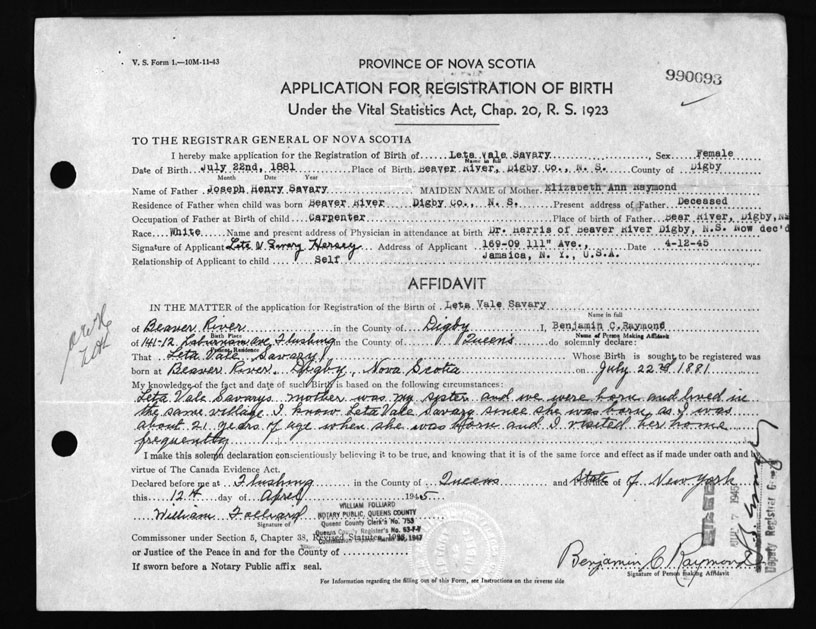 V. S. Form 1.—10M-11-43
PROVINCE OF NOVA SCOTIA
990693
APPLICATION FOR REGISTRATION OF BIRTH
Under the Vital Statistics Act, Chap. 20, R. S. 1923
TO THE REGISTRAR GENERAL OF NOVA SCOTIA
I hereby make application for the Registration of Birth of Leta Vale Savary Sex Female
Name in full
Date of Birth July 22nd, 1881 Place of Birth Beaver River, Digby Co., N. S. County of Digby
Month Date Year
Name of Father Joseph Henry Savary MAIDEN NAME of Mother Elizabeth Ann Raymond
Residence of Father when child was born Beaver River Digby Co., N. S. Present address of Father Deceased
Occupation of Father at Birth of child Carpenter Place of birth of Father Bear River, Digby, NS
Race White Name and present address of Physician in attendance at birth Dr. Harris of Beaver River Digby, N.S. Now dec'd
Signature of Applicant Leta V. Savary Hersey Address of Applicant 169-09 111" Ave., Date 4-12-45
Relationship of Applicant to child Self Jamaica, N. Y., U.S.A.
AFFIDAVIT
IN THE MATTER of the application for Registration of the Birth of Leta Vale Savary
Name in full
of Beaver River in the County of Digby I, Benjamin C. Raymond
Birth Place Name of Person Making Affidavit
of 141-12 Laburnum Ave Flushing in the County of Queens do solemnly declare:
Present Residence
That Leta Vale Savary Whose Birth is sought to be registered was
born at Beaver River, Digby, Nova Scotia on July 22nd 1881
My knowledge of the fact and date of such Birth is based on the following circumstances:
Leta Vale Savarys mother was my sister and we were born and lived in
the same village. I know Leta Vale Savary since she was born, as I was
about 21 years of age when she was born and I visited her home
frequently
I make this solemn declaration conscientiously believing it to be true, and knowing that it is of the same force and effect as if made under oath and by
virtue of The Canada Evidence Act.
Declared before me at Flushing in the County of Queens and State Province of New York
this 12th day of April 1945
William Folliard
Signature of
WILLIAM FOLLIARD
NOTARY PUBLIC, QUEENS COUNTY
Queens County Clerk's No. 753
Queens County Register's No.
Commissioner under Section 5, Chapter 38, Revised Statutes,
or Justice of the Peace in and for the County of
If sworn before a Notary Public affix seal.
Benjamin C. Raymond
Signature of Person Making Affidavit
Deputy Registrar General
For Information regarding the filling out of this Form, see Instructions on the reverse side